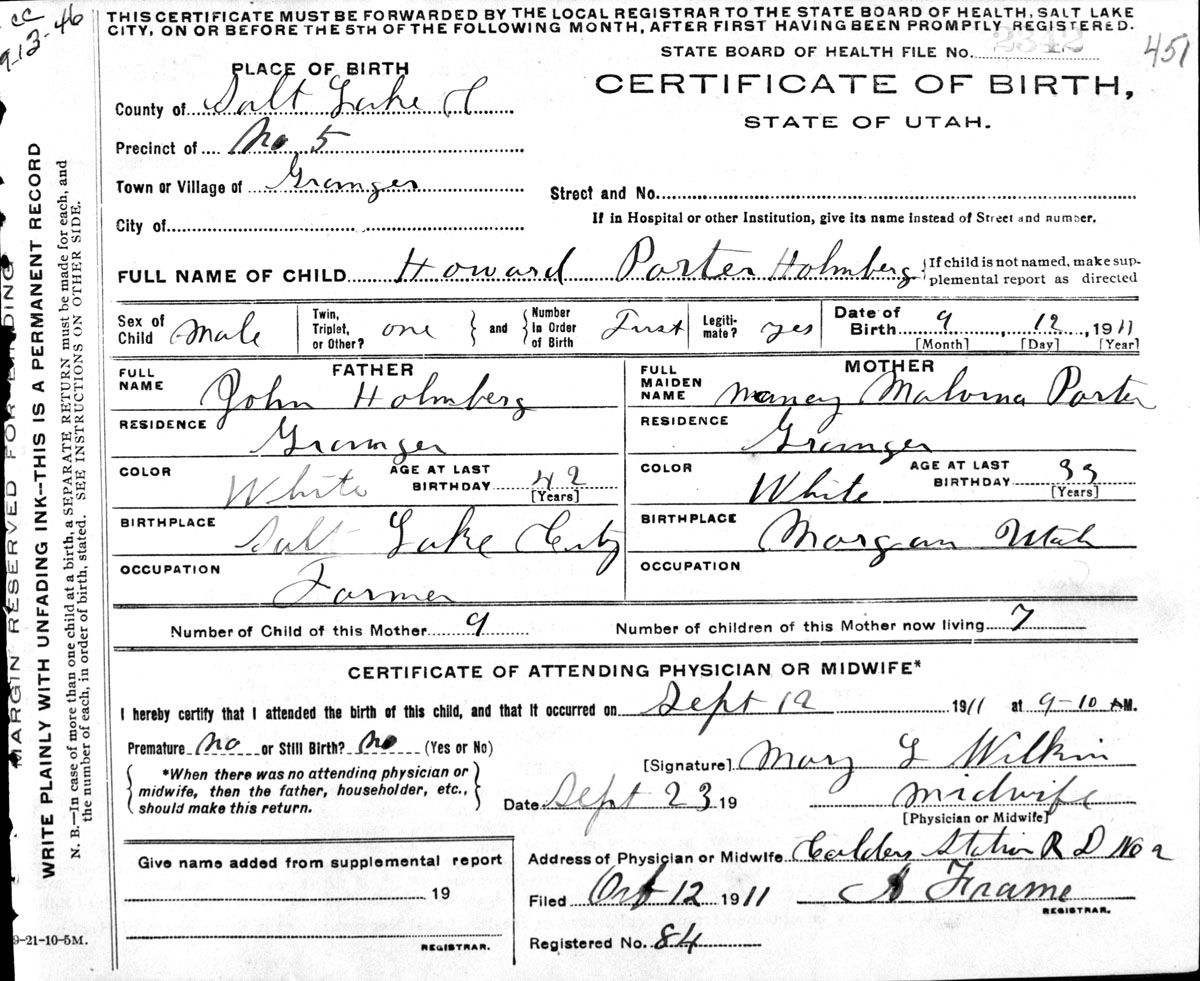 cc
9-13-46
THIS CERTIFICATE MUST BE FORWARDED BY THE LOCAL REGISTRAR TO THE STATE BOARD OF HEALTH, SALT LAKE
CITY, ON OR BEFORE THE 5TH OF THE FOLLOWING MONTH, AFTER FIRST HAVING BEEN PROMPTLY REGISTERED.
STATE BOARD OF HEALTH FILE No. 2342
451
PLACE OF BIRTH
CERTIFICATE OF BIRTH,
STATE OF UTAH.
County of Salt Lake C
Precinct of No 5
Town or Village of Granger
Street and No.
City of
If in Hospital or other Institution, give its name instead of Street and number.
FULL NAME OF CHILD Howard Porter Holmberg {If child is not named, make sup-
plemental report as directed
Sex of Child Male Twin, Triplet, or Other? one } and { Number in Order of Birth First Legiti-mate? yes Date of Birth 9, 12, 1911
[Month] [Day] [Year]
FATHER
FULL NAME John Holmberg
RESIDENCE Granger
COLOR White AGE AT LAST BIRTHDAY 42
[Years]
BIRTHPLACE Salt Lake City
OCCUPATION Farmer
MOTHER
FULL MAIDEN NAME Nancy Malvina Porter
RESIDENCE Granger
COLOR White AGE AT LAST BIRTHDAY 39
[Years]
BIRTHPLACE Morgan Utah
OCCUPATION
Number of Child of this Mother 9 Number of children of this Mother now living 7
CERTIFICATE OF ATTENDING PHYSICIAN OR MIDWIFE*
I hereby certify that I attended the birth of this child, and that it occurred on Sept 12 1911 at 9-10 AM.
Premature no or Still Birth? no (Yes or No)
{*When there was no attending physician or
midwife, then the father, householder, etc.,
should make this return.}
[Signature] Mary L Wilkin
Date Sept 23 19 midwife
[Physician or Midwife]
Give name added from supplemental report
19
REGISTRAR.
Address of Physician or Midwife Calders Station R D No 2
Filed Oct 12 1911 A Frame
REGISTRAR.
Registered No. 84
9-21-10-5M.
MARGIN RESERVED FOR BINDING
WRITE PLAINLY WITH UNFADING INK--THIS IS A PERMANENT RECORD
N. B.—In case of more than one child at a birth, a SEPARATE RETURN must be made for each, and
the number of each, in order of birth, stated. SEE INSTRUCTIONS ON OTHER SIDE.